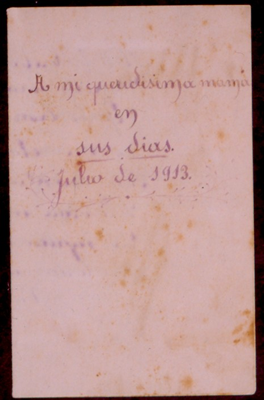 A mi queridisima mamá
en
sus dias.
Julio de 1913.